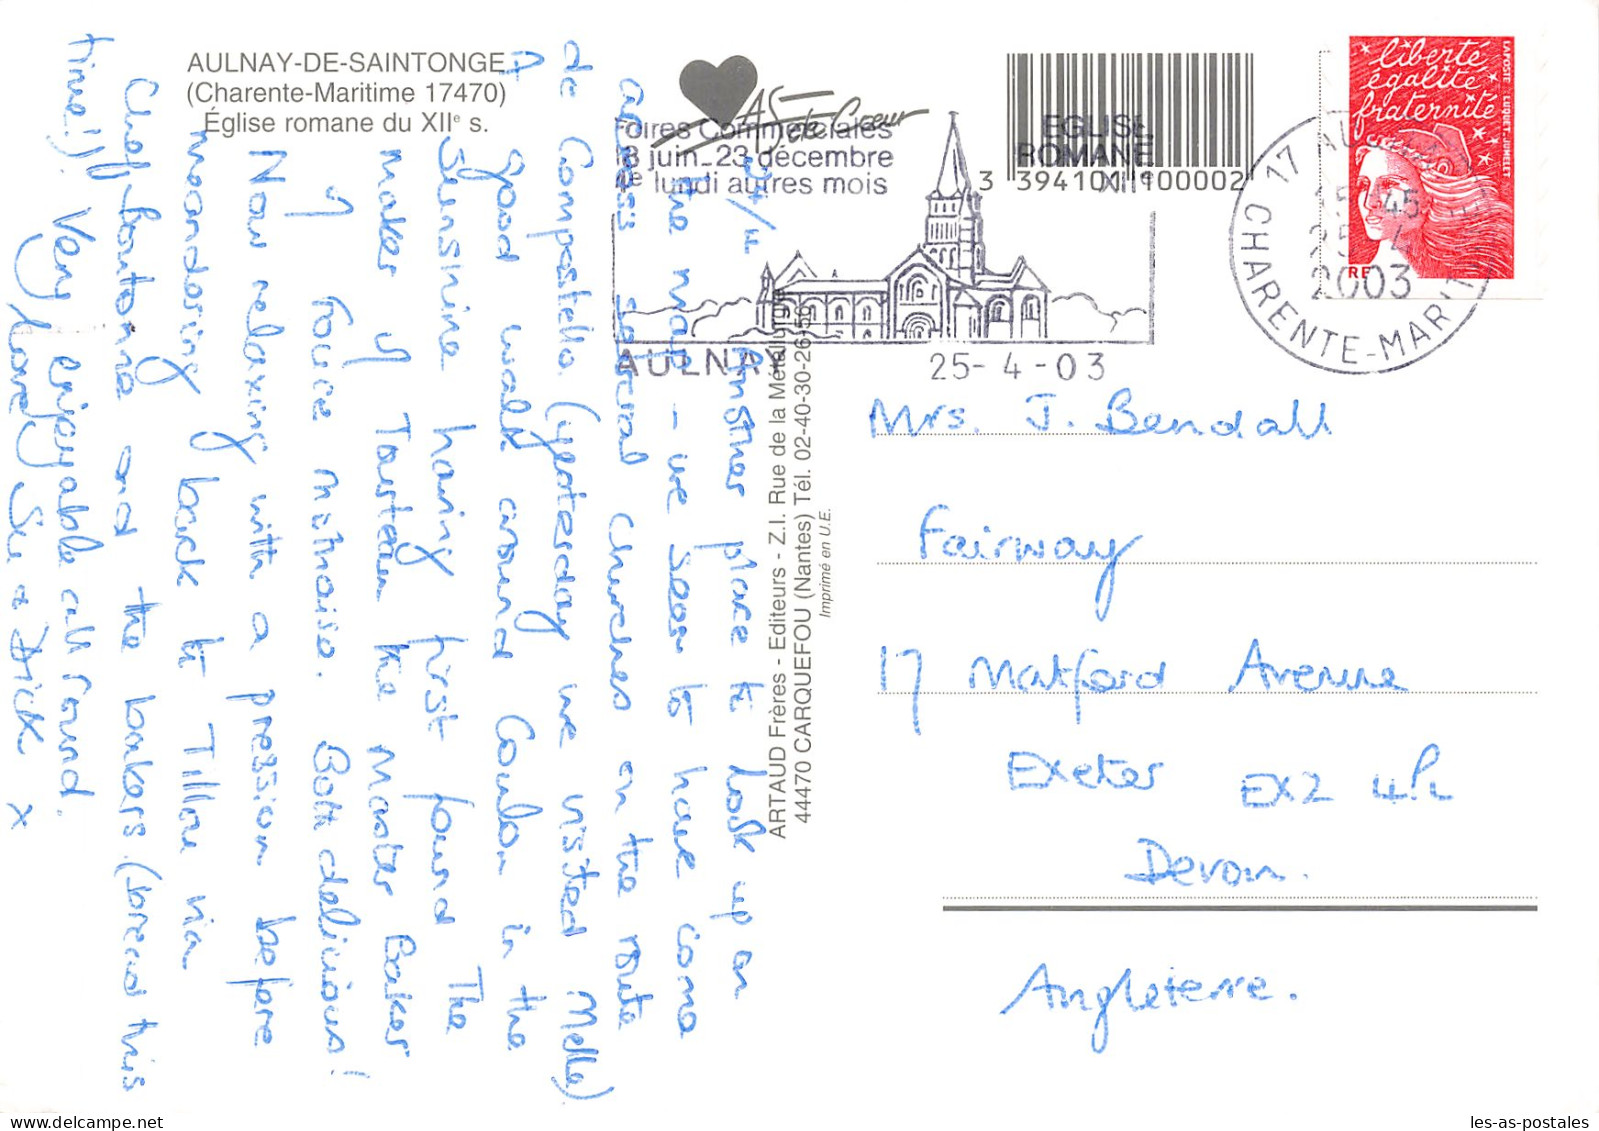 AULNAY-DE-SAINTONGE
(Charente-Maritime 17470)
Église romane du XIIe s.
AS de Cœur
Foires Commerciales
juin_23 décembre
lundi autres mois
EGLISE
ROMANE
XII e
3 394101 100002
AULNAY
25-4-03
17 AULNAY
15 45
25-4
2003
CHARENTE-MARITIME
liberté
égalité
fraternité
RF
LA POSTE LUQUET JUMELET
24/4 Another place to look up on
the map - we seem to have come
across several churches on the route
de Compostella (yesterday we visited Melle)
A good walk around Coulon in the
sunshine having first found The
maker of Tourteau the Master Baker
of Fouace mothaise. Both delicious!
Now relaxing with a pression before
meandering back to Tillou via
Chef Boutonne and the bakers. (bread this
time!) Very enjoyable all round.
Love, Sue & Dick x
ARTAUD Frères - Editeurs - Z.I. Rue de la Métallurgie
44470 CARQUEFOU (Nantes) Tél. 02-40-30-26-56
Imprimé en U.E.
Mrs. J. Bendall
Fairway
17 Matford Avenue
Exeter EX2 4PL
Devon.
Angleterre.
les-as-postales